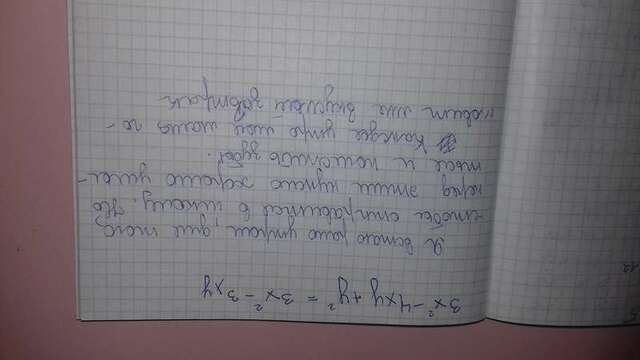 3x² - 4xy + y² = 3x² - 3xy
Я встаю рано утром, для того
чтобы отправится в школу. Но
перед этим нужно хорошо умы-
ться и почистить зубы.
Каждое утро моя мама го-
товит мне вкусный завтрак.
12